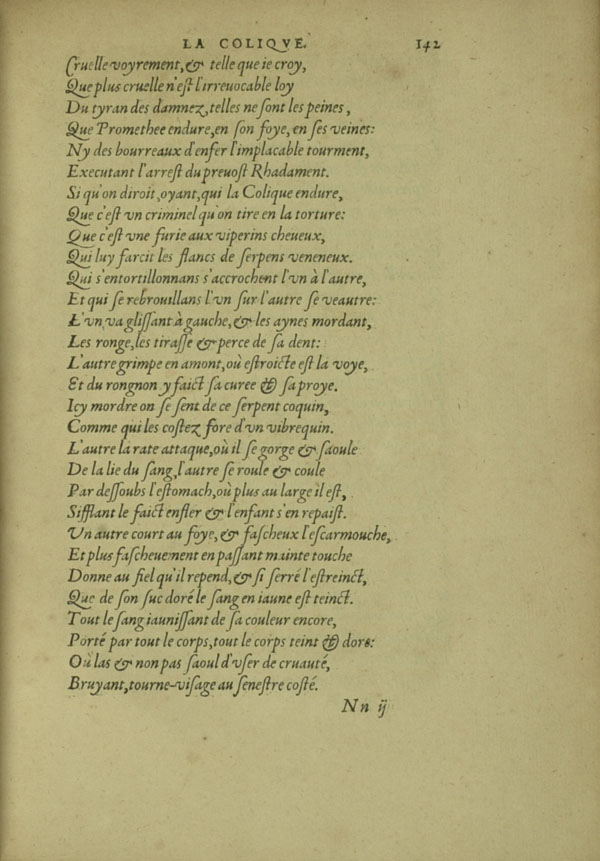 LA COLIQVE. 142
Cruelle voyrement, & telle que ie croy,
Que plus cruelle n'eſt l'irreuocable loy
Du tyran des damnez, telles ne ſont les peines,
Que Promethee endure, en ſon foye, en ſes veines:
Ny des bourreaux d'enfer l'implacable tourment,
Executant l'arreſt du preuoſt Rhadament.
Si qu'on diroit, oyant, qui la Colique endure,
Que c'eſt vn criminel qu'on tire en la torture:
Que c'eſt vne furie aux viperins cheueux,
Qui luy farcit les flancs de ſerpens veneneux.
Qui s'entortillonnans s'accrochent l'vn à l'autre,
Et qui ſe rebrouillans l'vn ſur l'autre ſe veautre:
L'vn, va gliſſant à gauche, & les aynes mordant,
Les ronge, les tiraſſe & perce de ſa dent:
L'autre grimpe en amont, où eſtroicte eſt la voye,
Et du rongnon y faict ſa curee & ſa proye.
Icy mordre on ſe ſent de ce ſerpent coquin,
Comme qui les coſtez fore d'vn vibrequin.
L'autre la rate attaque, où il ſe gorge & ſaoule
De la lie du ſang, l'autre ſe roule & coule
Par deſſoubs l'eſtomach, où plus au large il eſt,
Sifflant le faict enfler & l'enfant s'en repaiſt.
Vn autre court au foye, & faſcheux l'eſcarmouche,
Et plus faſcheuement en paſſant mainte touche
Donne au fiel qu'il repend, & ſi ſerré l'eſtreinct,
Que de ſon ſuc doré le ſang en iaune eſt teinct.
Tout le ſang iauniſſant de ſa couleur encore,
Porté par tout le corps, tout le corps teint & dore:
Où las & non pas ſaoul d'vſer de cruauté,
Bruyant, tourne-viſage au ſeneſtre coſté.
Nn ij